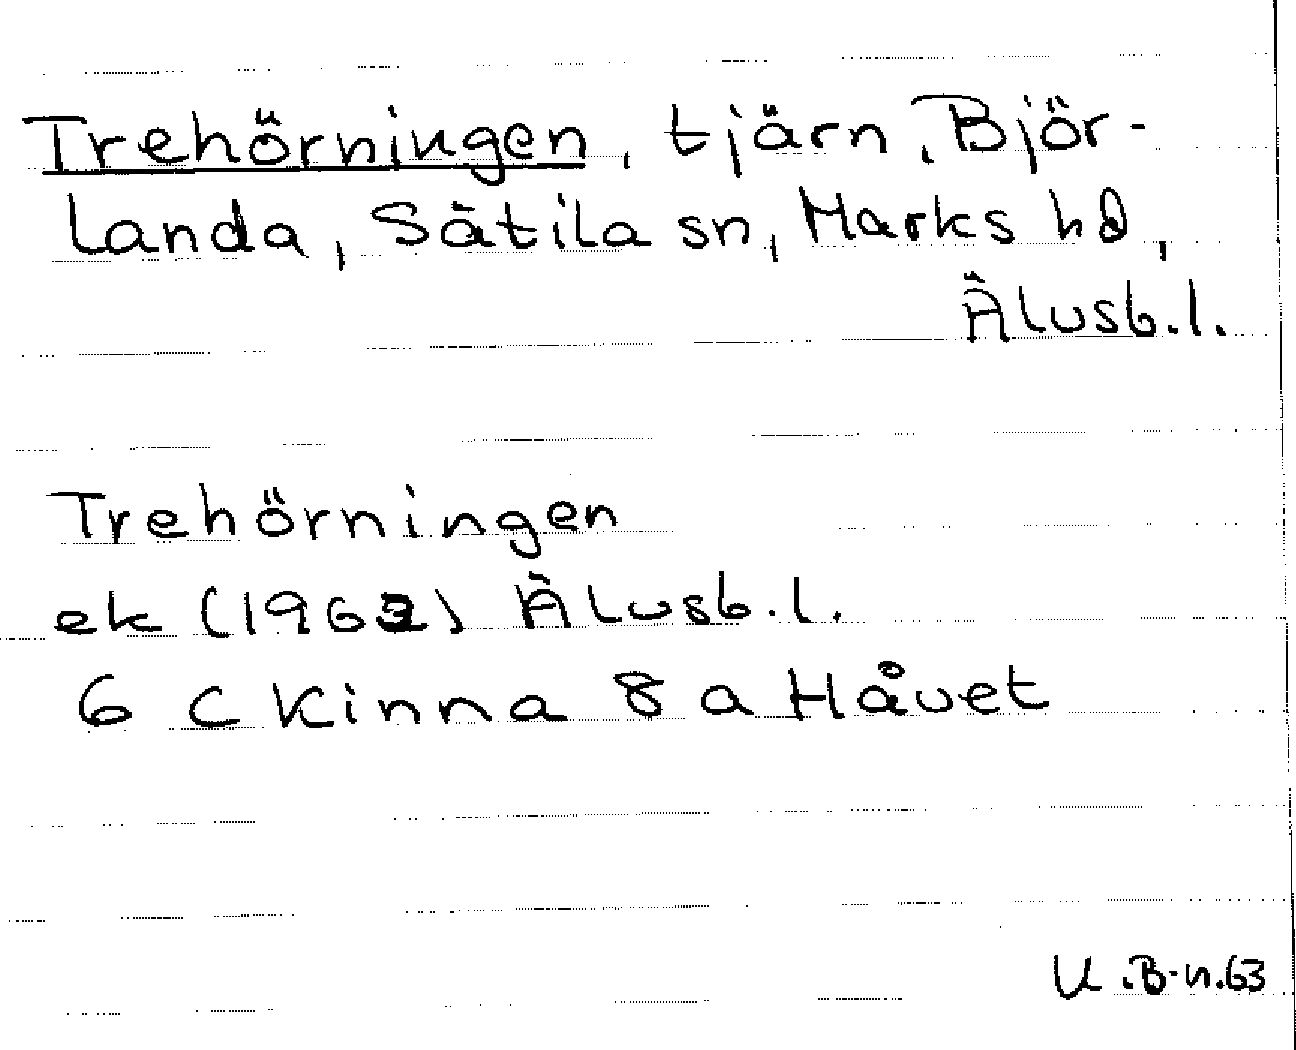 Trehörningen, tjärn, Björ-
landa, Sätila sn, Marks hd,
Älvsb.l.
Trehörningen
ek (1963) Älvsb.l.
6 C Kinna 8 a Håvet
U.B-n.63